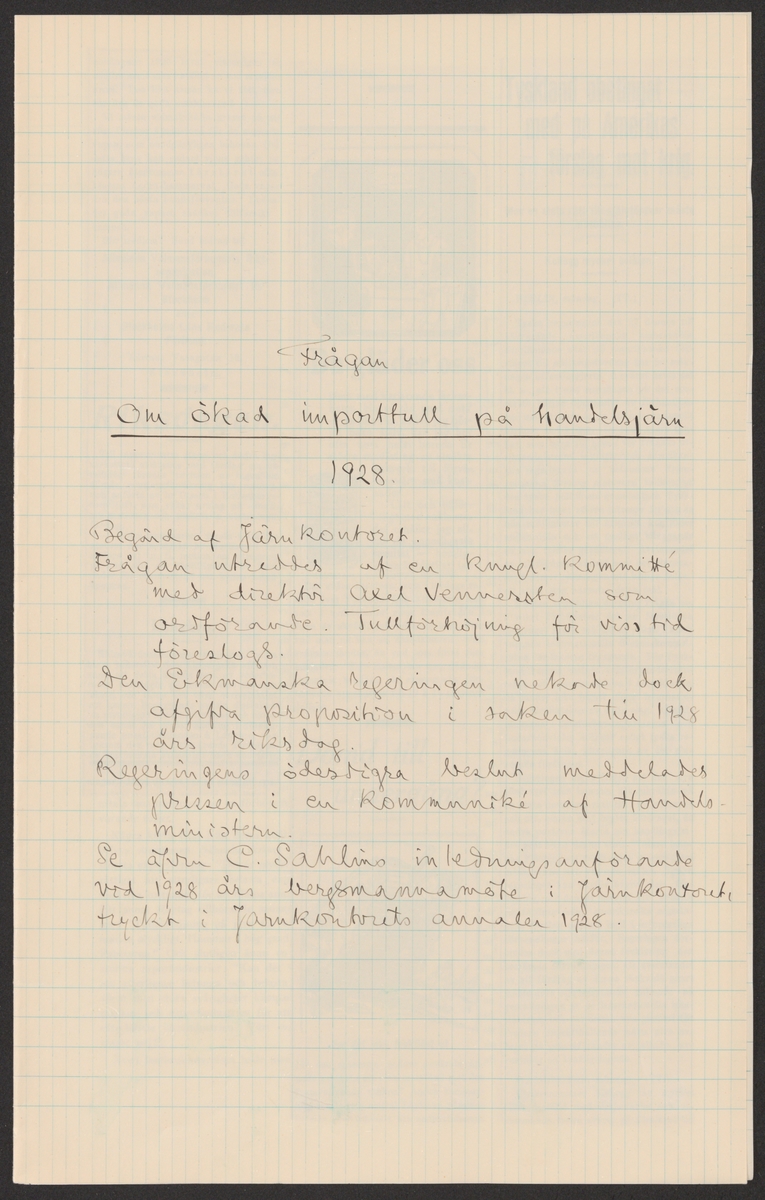 Frågan
Om ökad importtull på handelsjärn
1928.
Begärd af Järnkontoret.
Frågan utreddes af en kungl. kommitté
med direktör Axel Vennersten som
ordförande. Tullförhöjning för viss tid
föreslogs.
Den Ekmanska regeringen nekade dock
afgifva proposition i saken till 1928
års riksdag.
Regeringens ödesdigra beslut meddelades
pressen i en kommuniké af Handels-
ministern.
Se äfven C. Sahlins inledningsanförande
vid 1928 års bergsmannamöte i Järnkontoret,
tryckt i Järnkontorets annaler 1928.